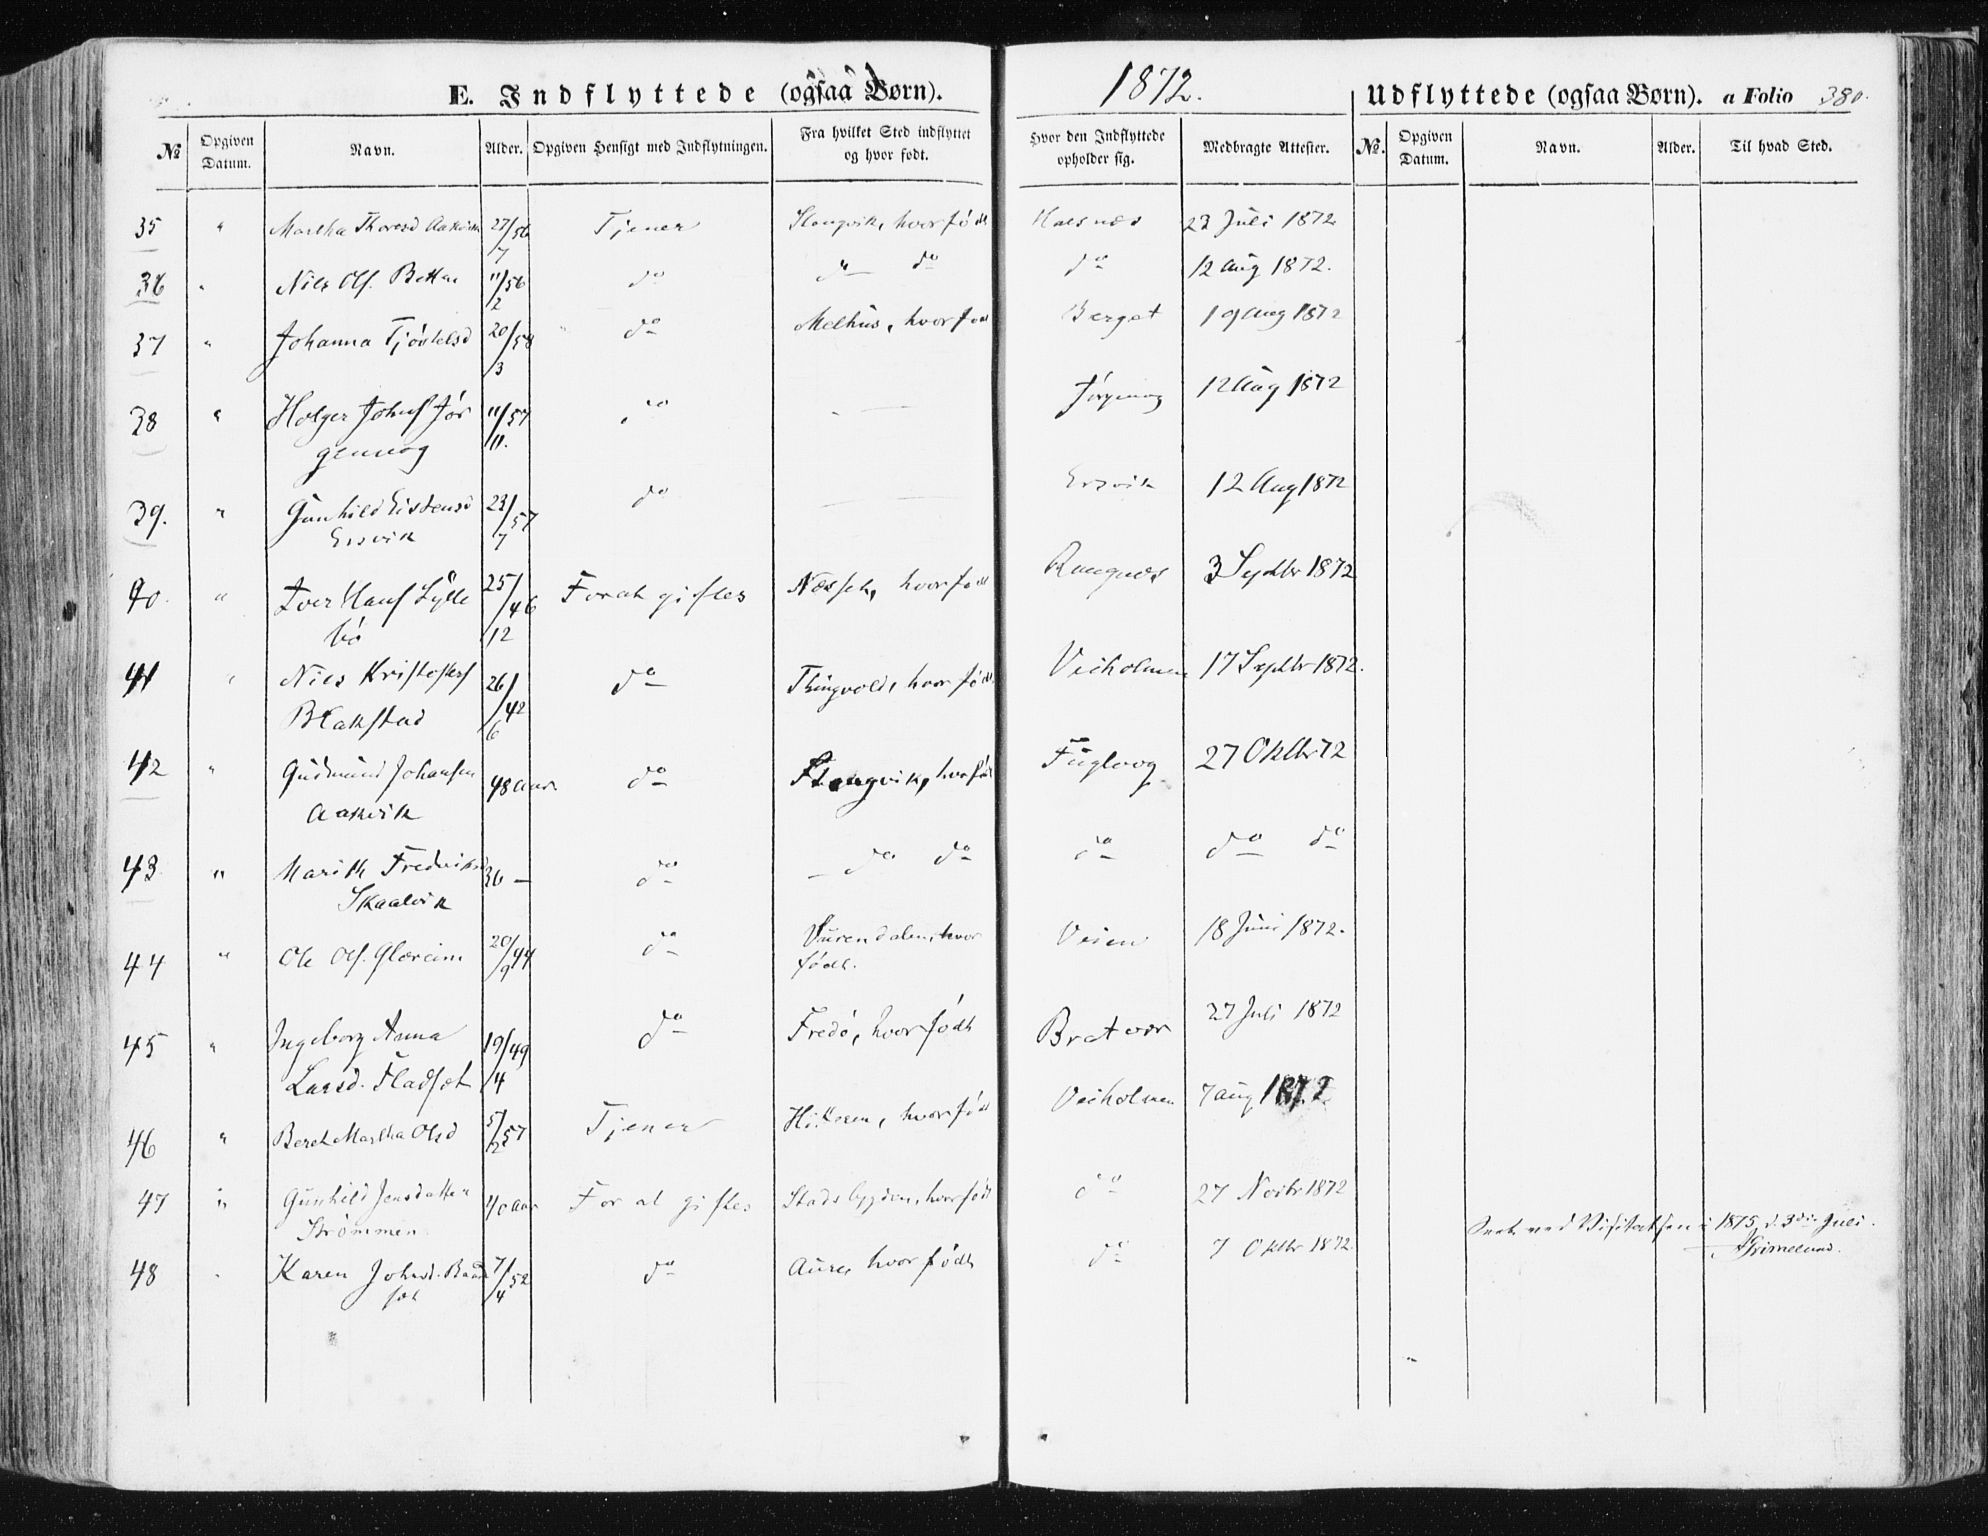 E. Indflyttede (ogsaa Børn). 1872. Udflyttede (ogsaa Børn). a Folio 380.
№ Opgiven Datum. Navn. Alder. Opgiven Hensigt med Indflytningen. Fra hvilket Sted indflyttet og hvor født. Hvor den Indflyttede opholder sig. Medbragte Attester. №. Opgiven Datum. Navn. Alder. Til hvad Sted.
35 " Martha Thoresd Aakvik 27/7 56 Tjener Stangvik, hvor født 23 Juli 1872
36 " Niels Ols. 11/2 56 do do do do 12 Aug 1872.
37 " Johanna 20/3 58 do Melhus, hvor født Berget 19 Aug 1872
38 " Holger Johns Jør
genvog 11/11 57 do Jörgenvog 12 Aug 1872
39. " Gunhild Eistensd
Ersvik 23/7 57 do Ersvik 12 Aug 1872
40. " Iver Hans Lylle
bö 25/12 46 For at giftes Næsset, hvor født 3 Septbr 1872
41 " Niels Kristofers
Blakstad 26/6 42 do Thingvold, hvor født Veiholmen 17 Septbr 1872.
42 " Gudmund Johansen
Aakvik 48 Aar do Stangvik, hvor født Fuglvog 27 Oktbr 72
43 " Marith Fredriksd
Skaalvik 36 — do — do do do do do
44 " Ole Ols. Glæreim 20/9 44 do Surendalen, hvor
født. Veien 18 Juni 1872.
45 " Ingeborg Anna
Larsd. Fladset 19/4 49 do Fredö, hvor født Bratvær 27 Juli 1872
46 " Beret Martha Olsd 5/2 57 Tjener Hitteren, hvor født Veiholmen 7 aug 1872
47 " Gunhild Jensdatter
Strömmen 40 Aar For at giftes Stadsbygden, hvor født do 27 Novbr 1872
Seet ved Visitatsen i 1875 d. 3die Juli.
Grimelund.
48 " Karen Johnsd. 7/4 52 do Aure, hvor født do 7 Oktbr 1872